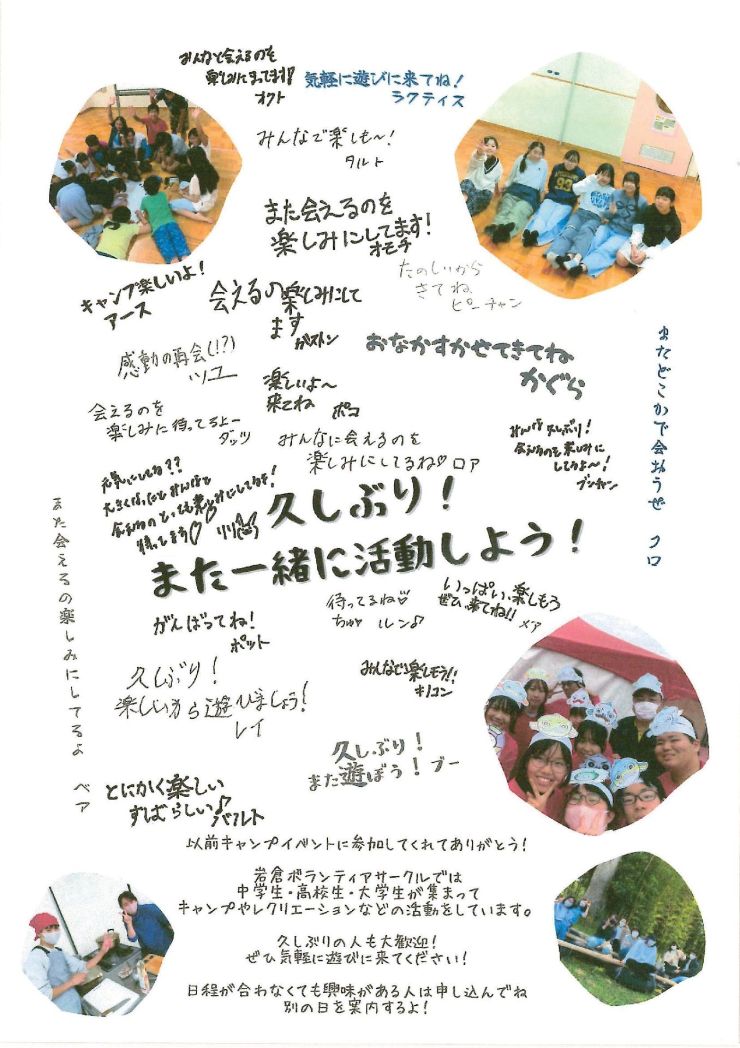 みんなと会えるのを
楽しみにまってます!
オクト
気軽に遊びに来てね!
ラクティス
みんなで楽しも〜!
タルト
また会えるのを
楽しみにしてます!
オモチ
たのしいから
きてね
ピーチャン
キャンプ楽しいよ!
アース
会えるの楽しみにして
ます
ガストン
感動の再会(!?)
ツユ
おなかすかせてきてね
かぐら
楽しいよ〜
来てね
ポコ
会えるのを
楽しみに待ってるよー
ダッツ
みんなに会えるのを
楽しみにしてるね♡ロア
みんな久しぶり!
会えるのを楽しみに
してるよ〜!
ブンチャン
またどこかで会おうぜ クロ
元気にしてる??
大きくなったみんなと
会えるのとっても楽しみにしてるよ!
待ってまう♡
リリ
久しぶり!
また一緒に活動しよう!
また会えるの楽しみにしてるよ ベア
がんばってね!
ポット
待ってるね♡
ちゅッ ルン♪
いっぱい楽しもう
ぜひ来てね!!
メア
久しぶり!
楽しいから遊びましょう!
レイ
みんなで楽しもう!!
キノコン
久しぶり!
また遊ぼう!ブー
とにかく楽しい
すばらしい♪
バルト
以前キャンプイベントに参加してくれてありがとう!
岩倉ボランティアサークルでは
中学生・高校生・大学生が集まって
キャンプやレクリエーションなどの活動をしています。
久しぶりの人も大歓迎!
ぜひ気軽に遊びに来てください!
日程が合わなくても興味がある人は申し込んでね
別の日を案内するよ!